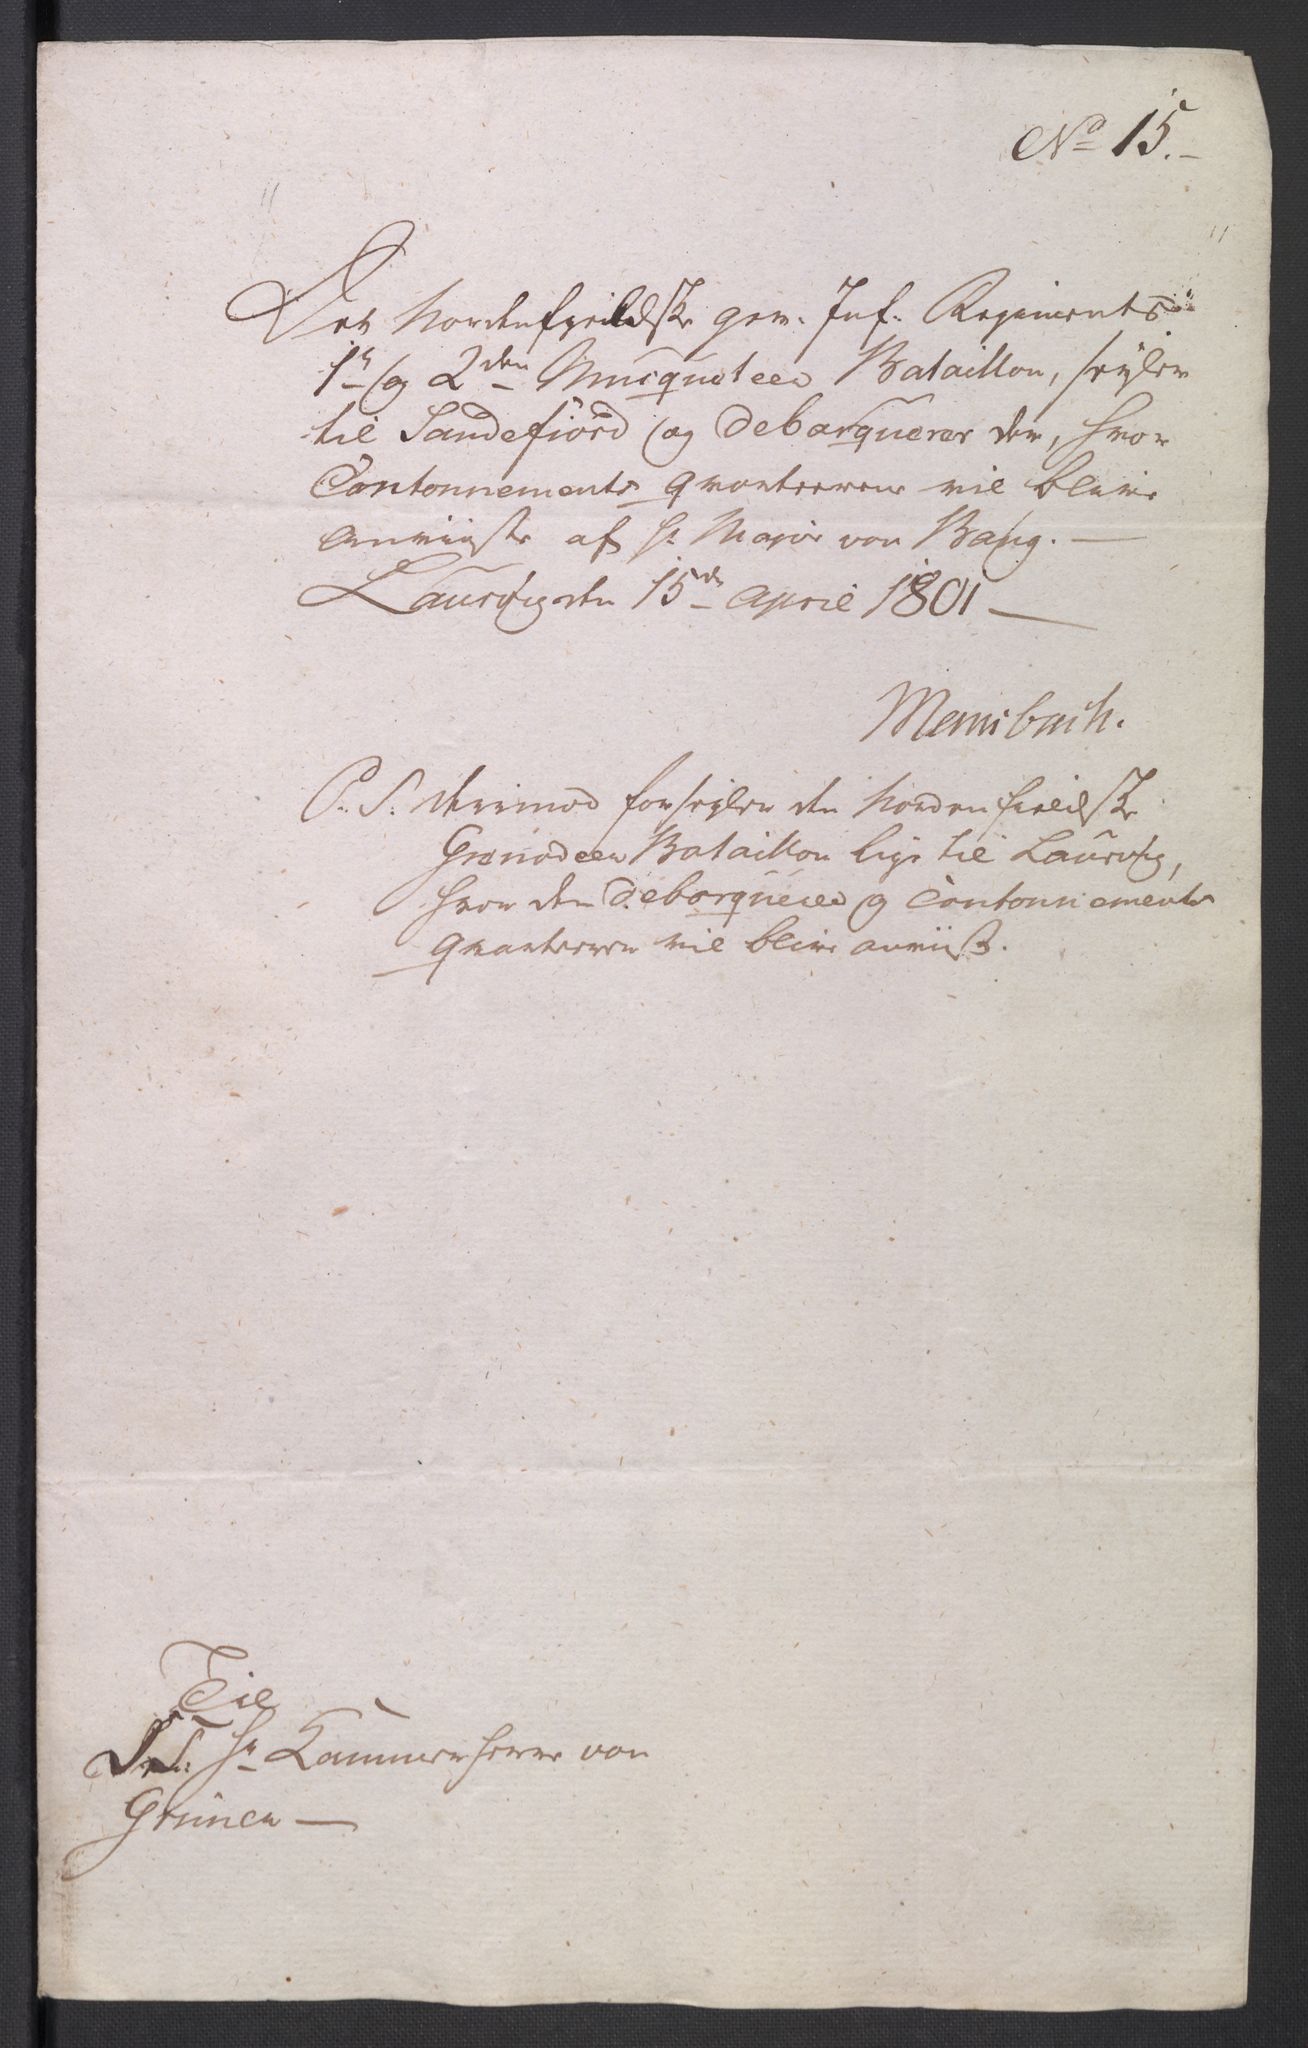 No 15.
Det Nordenfieldske gev. Inf. Regiments
1te og 2den Musqueteer Bataillon, seyler
til Sandefiord og debarquerer der, hvor
Cantonnements Qvarterene vil blive
anviiste af Hr Major von Bang.
Laurvig den 15de April 1801
Mansbach.
P. S. derimod forseyler den Nordenfieldske
Granadeer Bataillon lige til Laurvig,
hvor den debarquerer og Cantonnements
Qvarteeren vil blive anviist.
Til
Hr Kammerherre von
Grüner